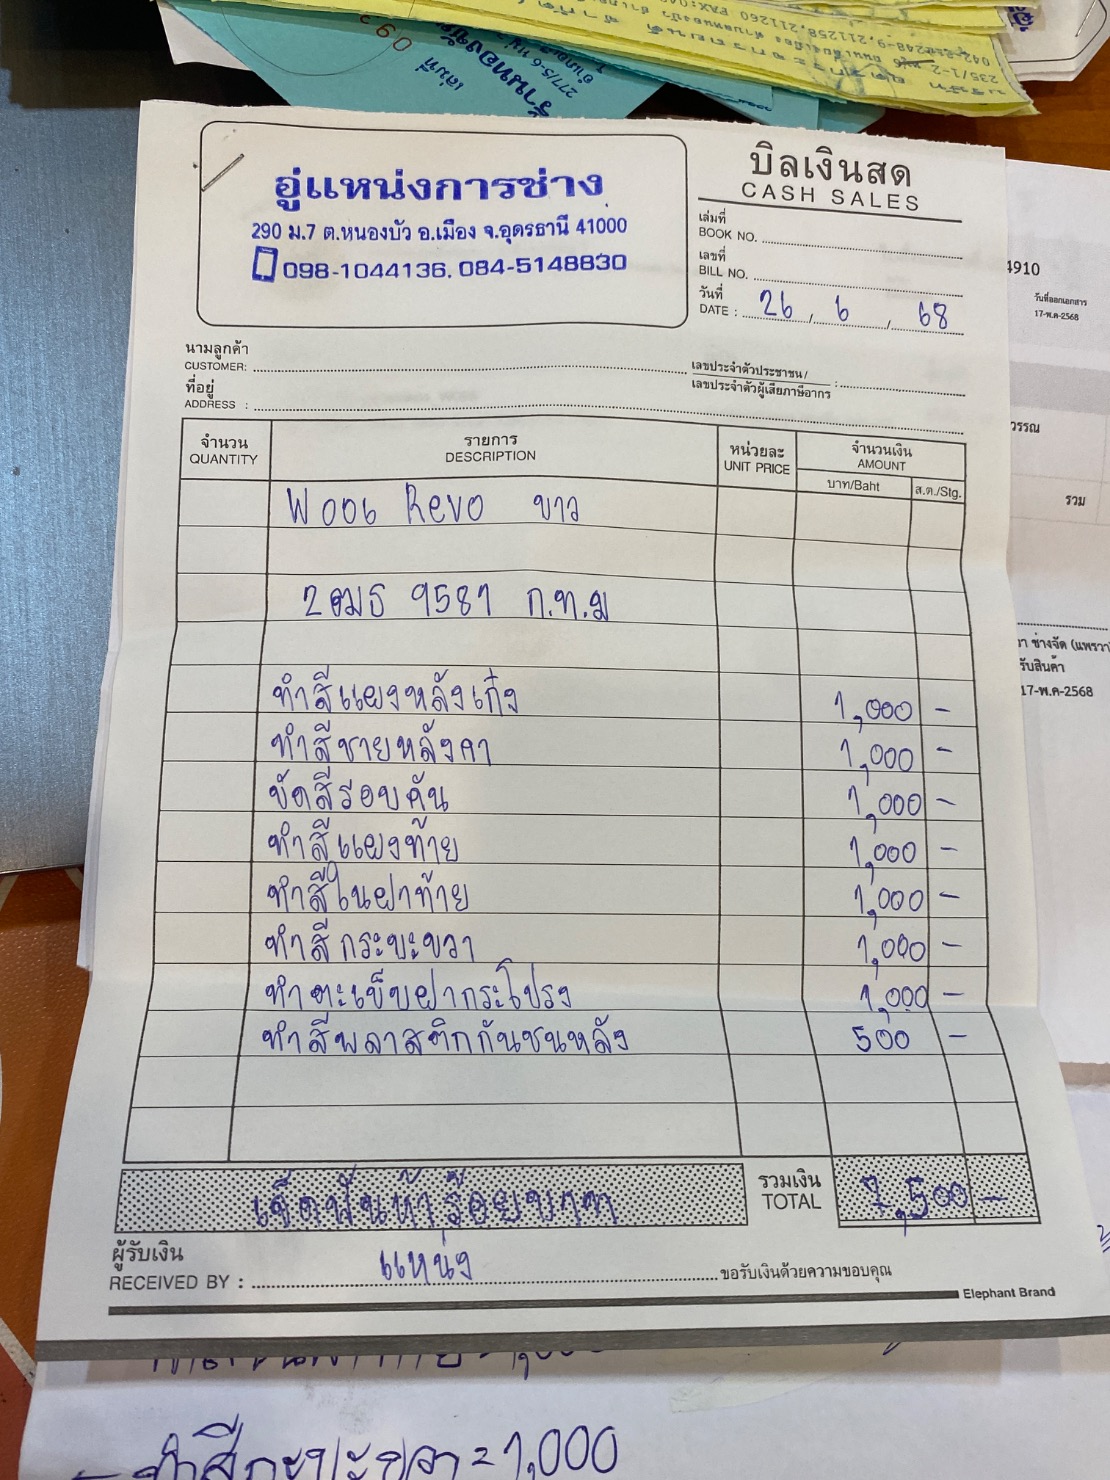 อู่แหน่งการช่าง
290 ม.7 ต.หนองบัว อ.เมือง จ.อุดรธานี 41000
098-1044136, 084-5148830
บิลเงินสด
CASH SALES
เล่มที่
BOOK NO.
เลขที่
BILL NO.
วันที่
DATE : 26 / 6 / 68
นามลูกค้า
CUSTOMER:
ที่อยู่
ADDRESS :
เลขประจำตัวประชาชน/
เลขประจำตัวผู้เสียภาษีอากร :
จำนวน รายการ หน่วยละ จำนวนเงิน
QUANTITY DESCRIPTION UNIT PRICE AMOUNT
บาท/Baht ส.ต./Stg.
W006 Revo ขาว
2ฒธ 9581 ก.ท.ม
ทำสีแผงหลังเก๋ง 1,000 -
ทำสีชายหลังคา 1,000 -
ขัดสีรอบคัน 1,000 -
ทำสีแผงท้าย 1,000 -
ทำสีในฝาท้าย 1,000 -
ทำสีกระบะขวา 1,000 -
ทำตะเข็บฝากระโปรง 1,000 -
ทำสีพลาสติกกันชนหลัง 500 -
เจ็ดพันห้าร้อยบาท
รวมเงิน
TOTAL 7,500 -
ผู้รับเงิน
RECEIVED BY : แหน่ง ขอรับเงินด้วยความขอบคุณ
Elephant Brand
4910
วันที่ออกเอกสาร
17-พ.ค-2568
วรรณ
รวม
ช่างจัด (แพรวา)
รับสินค้า
17-พ.ค-2568
ทำสีกระบะขวา = 1,000